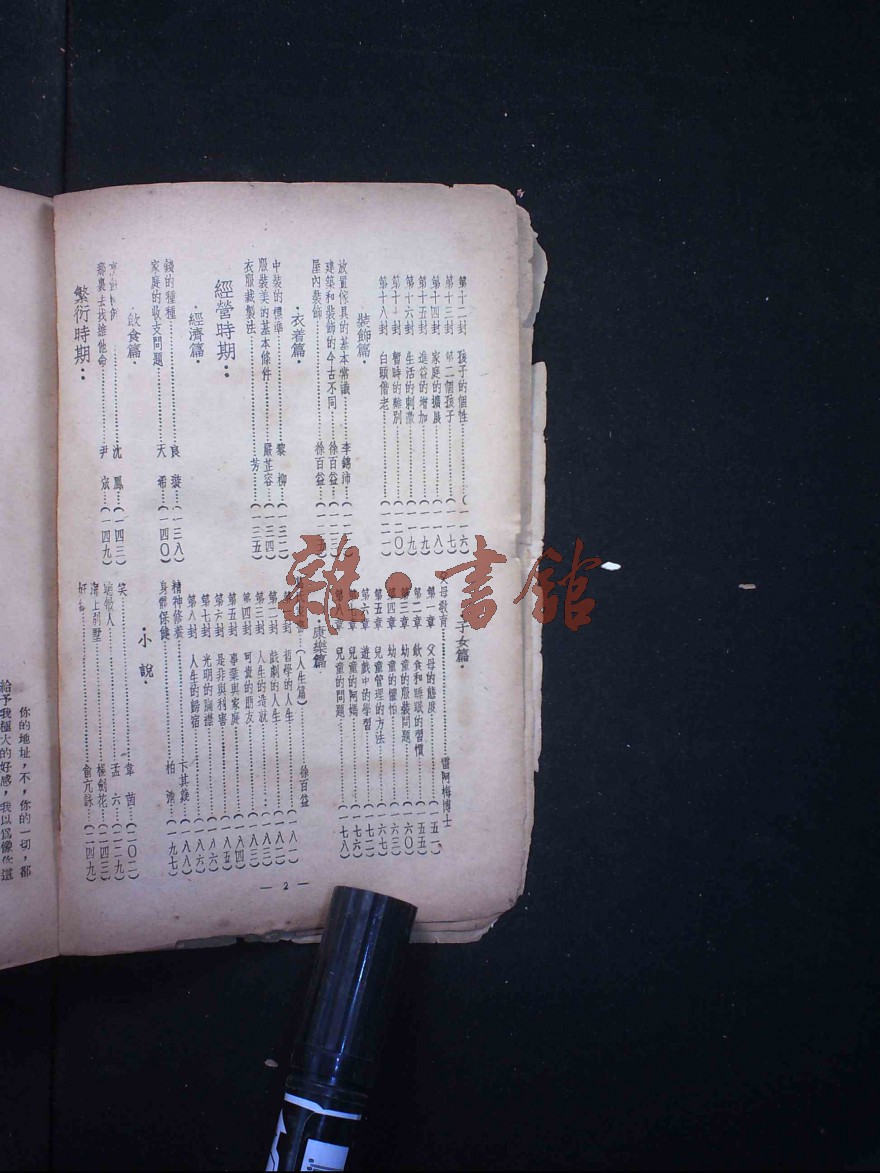 第十二封 孩子的個性……(一一六)
第十三封 第二個孩子……(一一七)
第十四封 家庭的擴展……(一一八)
第十五封 進益的增加……(一一九)
第十六封 生活的刺激……(一一九)
第十七封 暫時的離別……(一二〇)
第十八封 白頭偕老……(一二一)
裝飾篇·
放置傢具的基本常識……李錦沛……
建築和裝飾的今古不同……徐百益……
屋內裝飾……徐百益……
·衣着篇·
中裝的標準……黎 柳……(一三二)
服裝美的基本條件……嚴芷容……(一三四)
衣服裁製法……芳……(一三五)
經營時期:
·經濟篇·
錢的種種……良 璇……(一三八)
家庭的收支問題……天 希……(一四〇)
·飲食篇·
沈 鳳……(一四三)
去找維他命……尹 ……(一四九)
繁衍時期:
子女篇·
父母教育……雷阿梅博士
第一章 父母的態度……(一五一)
第二章 飲食和睡眠的習慣……(一五五)
第三章 幼童的服裝問題……(一六〇)
第四章 幼童的懼怕……(一六三)
第五章 兒童管理的方法……(一六七)
第六章 遊戲中的學習……(一七二)
第七章 兒童的阿媽……(一七六)
第八章 兒童的問題……(一七八)
·康樂篇·
(人生篇)……徐百益
哲學的人生……(一八一)
第二封 戲劇的人生……(一八二)
第三封 人生的造就……(一八三)
第四封 可貴的朋友……(一八四)
第五封 事業與家庭……(一八五)
第六封 是非與利害……(一八六)
第七封 光明的胸襟……(一八六)
第八封 人生的歸宿……(一八八)
精神修養……卞其薿……
身體保健……柏 ……(一九七)
·小說·
笑……韋 茵……(一〇二)
人……孟 六……(一二九)
海上別墅……劍花……(一四三)
好……俞亢詠……(一四九)
— 2 —
你的地址,不,你的一切,都
給予我極大的好感,我以爲像你這
雜·書館